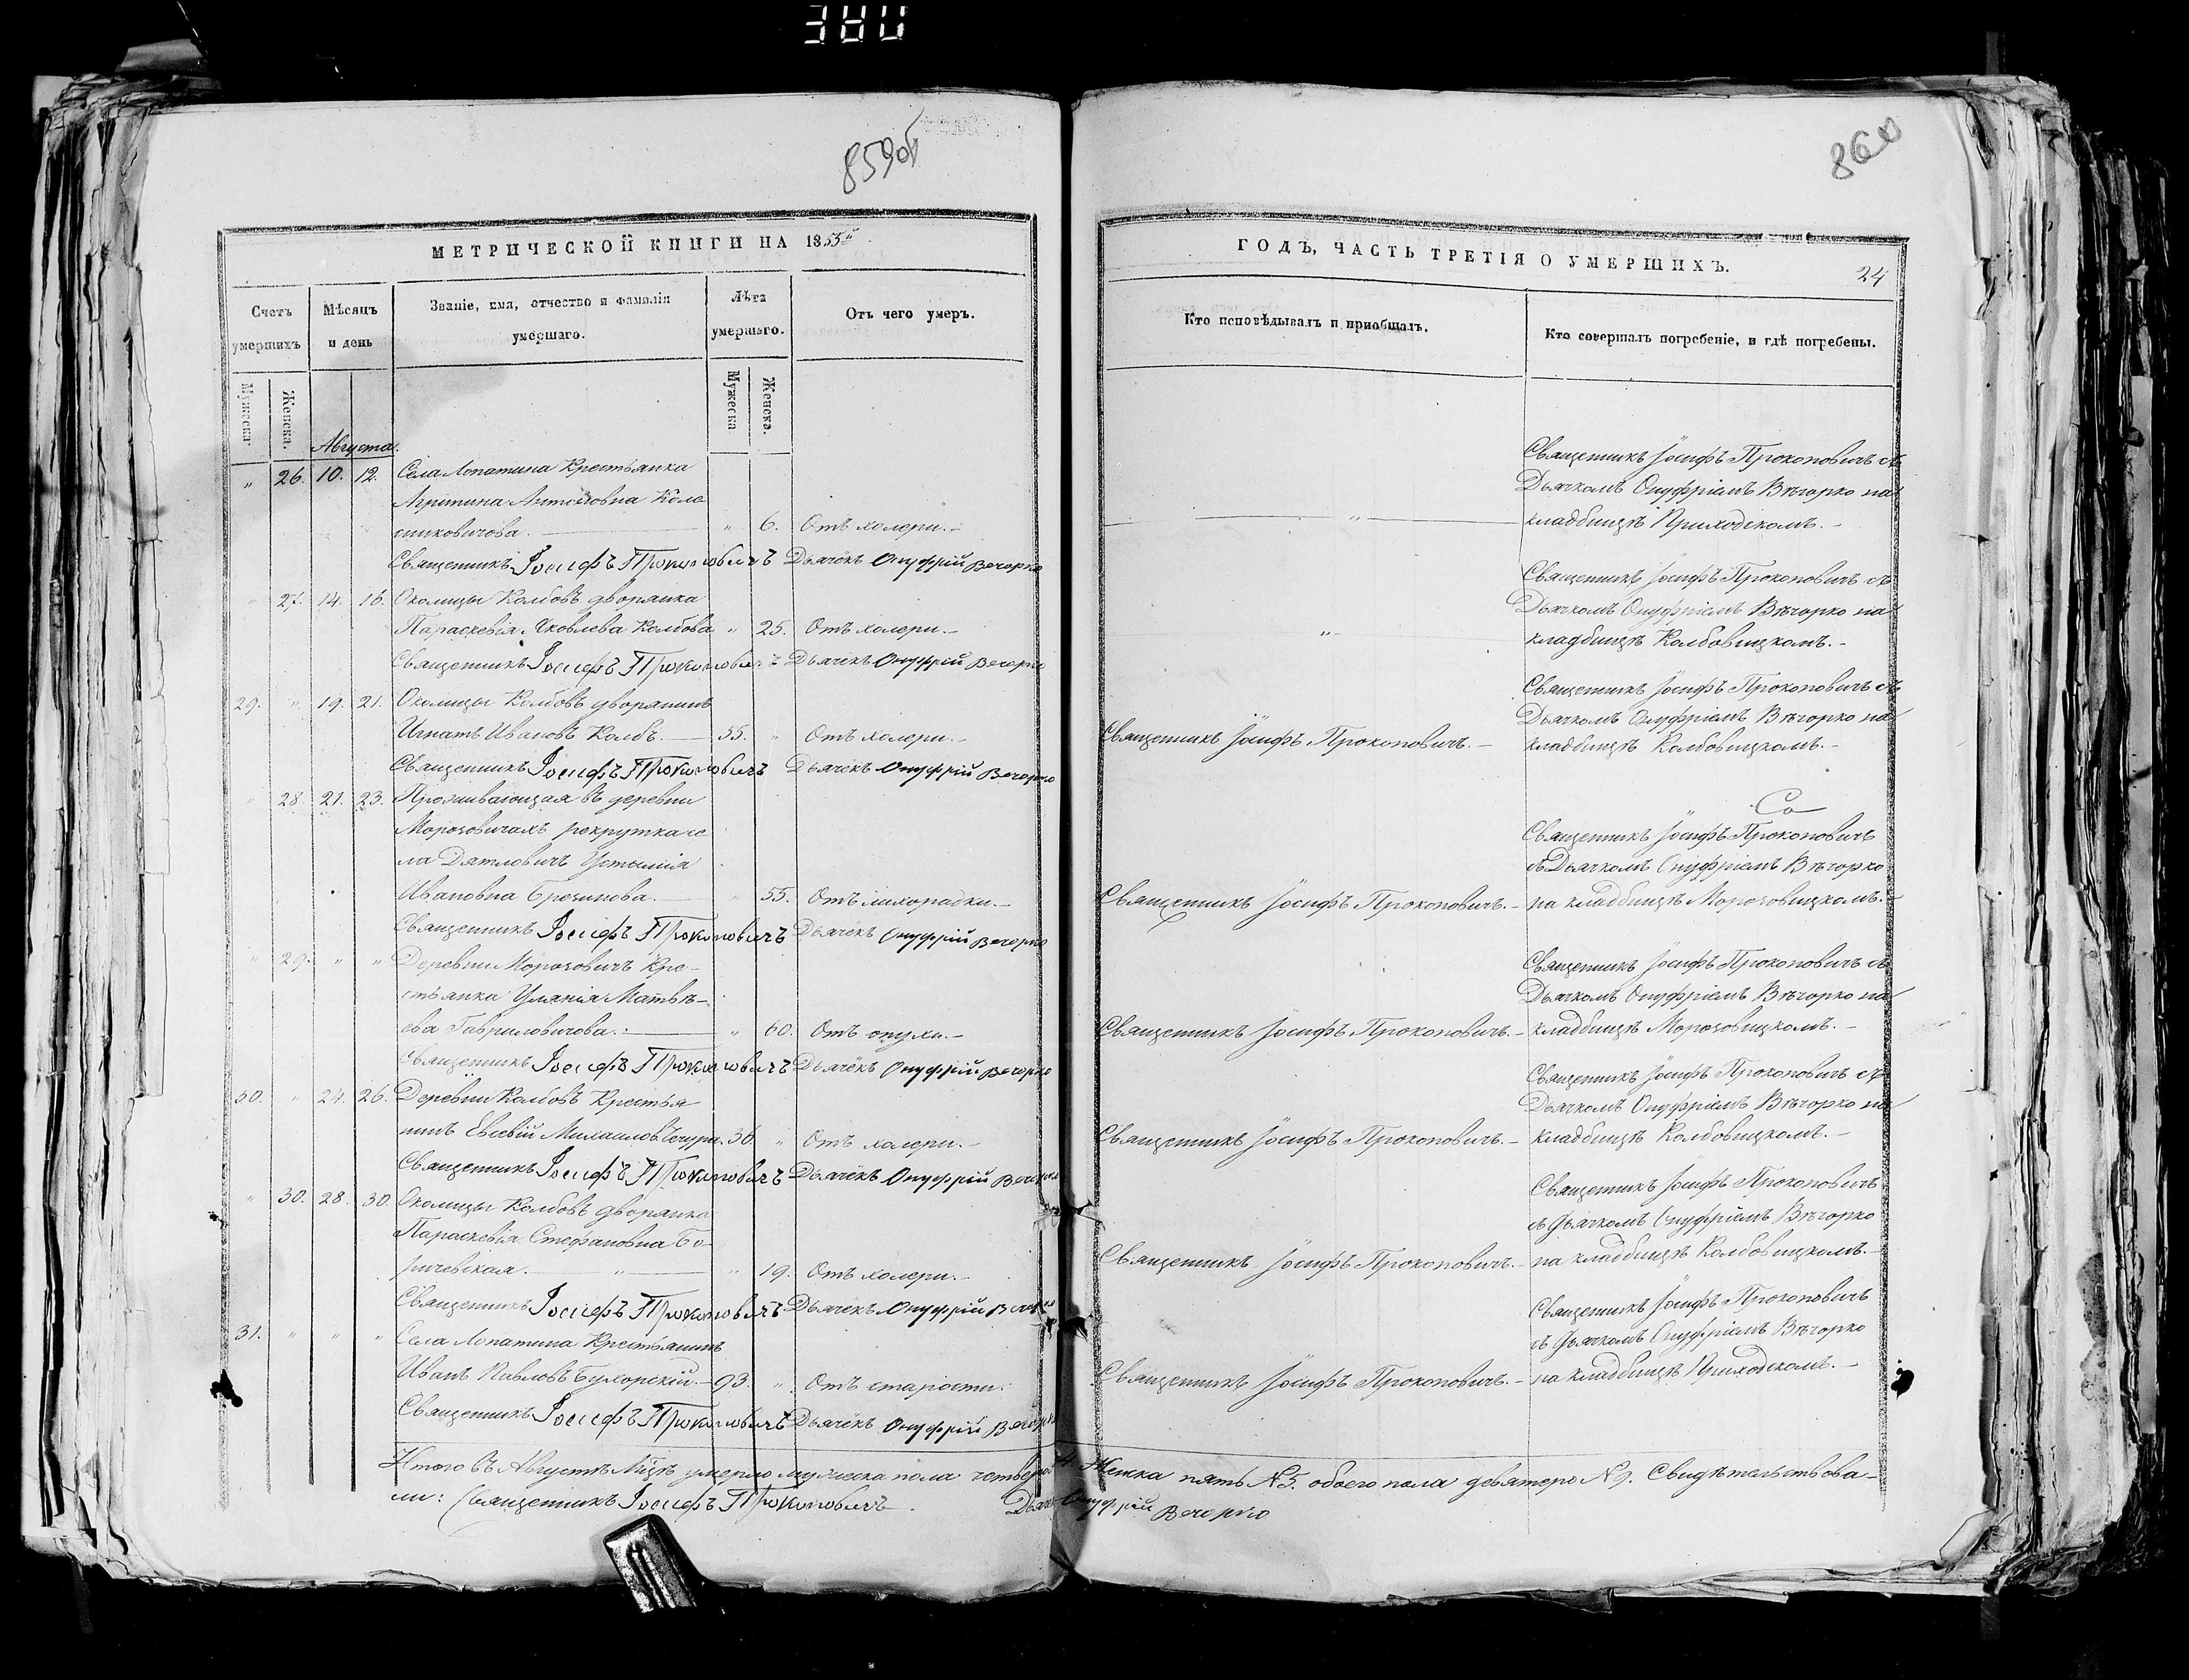 380
859об
860
МЕТРИЧЕСКОЙ КНИГИ НА 1853й
Счетъ умершихъ
Мѣсяцъ и день
Званіе, имя, отчество и фамилія умершаго.
Лѣта умершаго.
Отъ чего умеръ.
Мужеска
Женска.
Мужеска
Женска.
Августа.
„ 26. 10. 12. Села Лопатина Крестьянка
Антоновна Коле
сниковичова. „ 6. Отъ холери.
Священникъ Іосифъ Прокоповичъ Дьячёкъ Онуфрій Вечорко
„ 27. 14. 16. Околицы Колбовъ дворянка
Параскевія Яковлева Колбова „ 25. Отъ холери.
Священникъ Іосифъ Прокоповичъ Дьячёкъ Онуфрій Вечорко
29. „ 19. 21. Околицы Колбовъ дворянинъ
Игнатъ Ивановъ Колбъ. 55. „ Отъ холери.
Священникъ Іосифъ Прокоповичъ Дьячёкъ Онуфрій Вечорко
„ 28. 21. 23. Проживающая въ деревни
Морозовичахъ рекрутка се
ла Дятловичъ Устинія
Ивановна „ 55. Отъ лихорадки.
Священникъ Іосифъ Прокоповичъ Дьячёкъ Онуфрій Вечорко
„ 29. „ „ Деревни Морозовичъ Кре-
стьянка Улянія Матвѣ-
ева Гавриловичова. „ 60. Отъ опухи.
Священникъ Іосифъ Прокоповичъ Дьячёкъ Онуфрій Вечорко
30. „ 24. 26. Деревни Колбовъ Крестья
нинъ Евсевій Михаиловъ 36. „ Отъ холери.
Священникъ Іосифъ Прокоповичъ Дьячёкъ Онуфрій Вечорко
„ 30. 28. 30. Околицы Колбовъ дворянка
Параскевія Стефановна Бо-
ричевская. „ „ 19. Отъ холери.
Священникъ Іосифъ Прокоповичъ Дьячёкъ Онуфрій Вечорко
31. „ „ „ Села Лопатина Крестьянинъ
Иванъ Павловъ Бухорскій. 93. „ Отъ старости.
Священникъ Іосифъ Прокоповичъ Дьячёкъ Онуфрій Вечорко
Итого въ Августѣ М͠цѣ умерло мужеска пола четверо 4 Женска пять №5. обоего пола девятеро №9. Свидѣтельствова-
ли: Священникъ Іосифъ Прокоповичъ. Дьячёкъ Онуфрій Вечорко
ГОДЪ, ЧАСТЬ ТРЕТІЯ О УМЕРШИХЪ.
24
Кто исповѣдывалъ и приобщалъ.
Кто совершалъ погребеніе, и гдѣ погребены.
Священникъ Іосифъ Прокоповичъ съ
Дьячкомъ Онуфріемъ Вѣчорко на
„ кладбищѣ Приходскомъ.
Священникъ Іосифъ Прокоповичъ съ
Дьячкомъ Онуфріемъ Вѣчорко на
„ кладбищѣ Колбовицкомъ.
Священникъ Іосифъ Прокоповичъ съ
Дьячкомъ Онуфріемъ Вѣчорко на
Священникъ Іосифъ Прокоповичъ. кладбищѣ Колбовицкомъ.
Со
Священникъ Іосифъ Прокоповичъ
съ Дьячкомъ Онуфріемъ Вѣчорко
Священникъ Іосифъ Прокоповичъ. на кладбищѣ Морозовицкомъ.
Священникъ Іосифъ Прокоповичъ съ
Дьячкомъ Онуфріемъ Вѣчорко на
Священникъ Іосифъ Прокоповичъ. кладбищѣ Морозовицкомъ.
Священникъ Іосифъ Прокоповичъ съ
Дьячкомъ Онуфріемъ Вѣчорко на
Священникъ Іосифъ Прокоповичъ. кладбищѣ Колбовицкомъ.
Священникъ Іосифъ Прокоповичъ
съ Дьячкомъ Онуфріемъ Вѣчорко
Священникъ Іосифъ Прокоповичъ. на кладбищѣ Колбовицкомъ.
Священникъ Іосифъ Прокоповичъ
съ Дьячкомъ Онуфріемъ Вѣчорко
Священникъ Іосифъ Прокоповичъ. на кладбищѣ Приходскомъ.